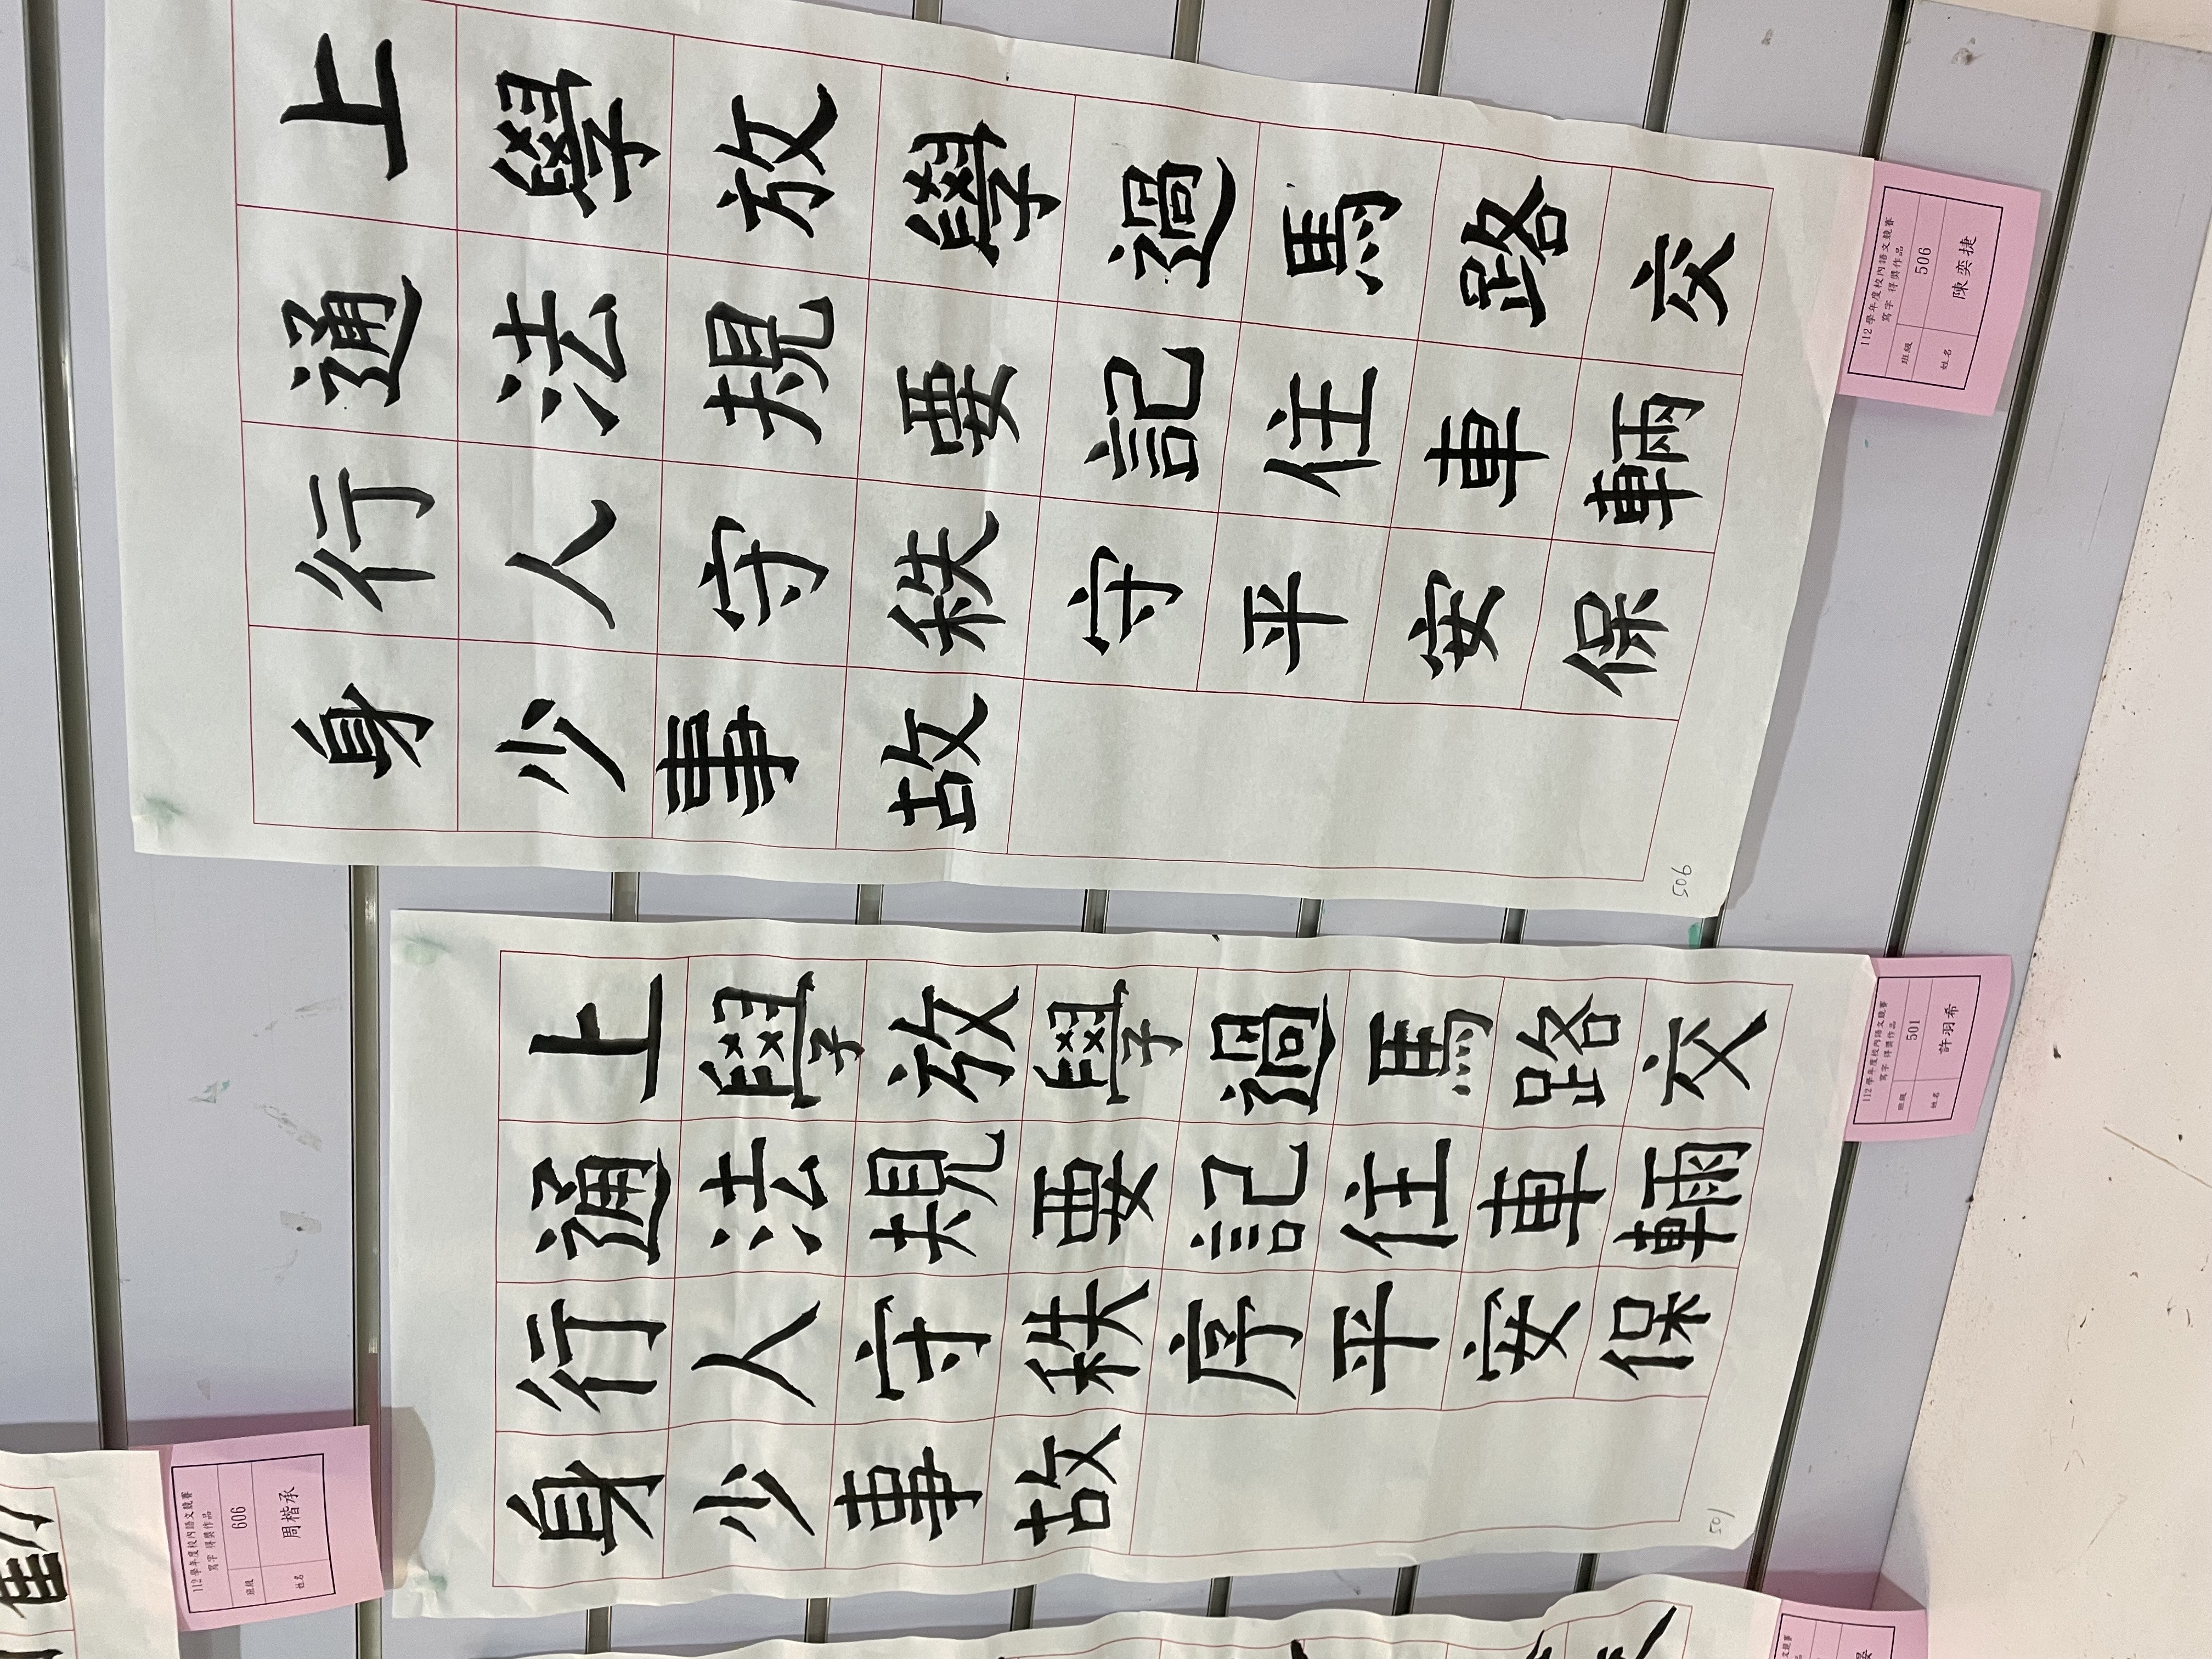 上學放學過馬路交
通法規要記住車輛
行人守秩守平安保
身少事故
506
112 學年度校內語文競賽
寫字 得獎作品
班級 506
姓名 陳奕捷
上學放學過馬路交
通法規要記住車輛
行人守秩序平安保
身少事故
501
112 學年度校內語文競賽
寫字 得獎作品
班級 501
姓名 許羽希
112 學年度校內語文競賽
寫字 得獎作品
班級 606
姓名 周楷承